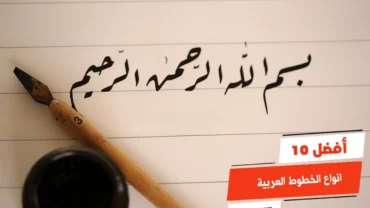 بسم الله الرحمن الرحيم
أفضل 10
انواع الخطوط العربية
3